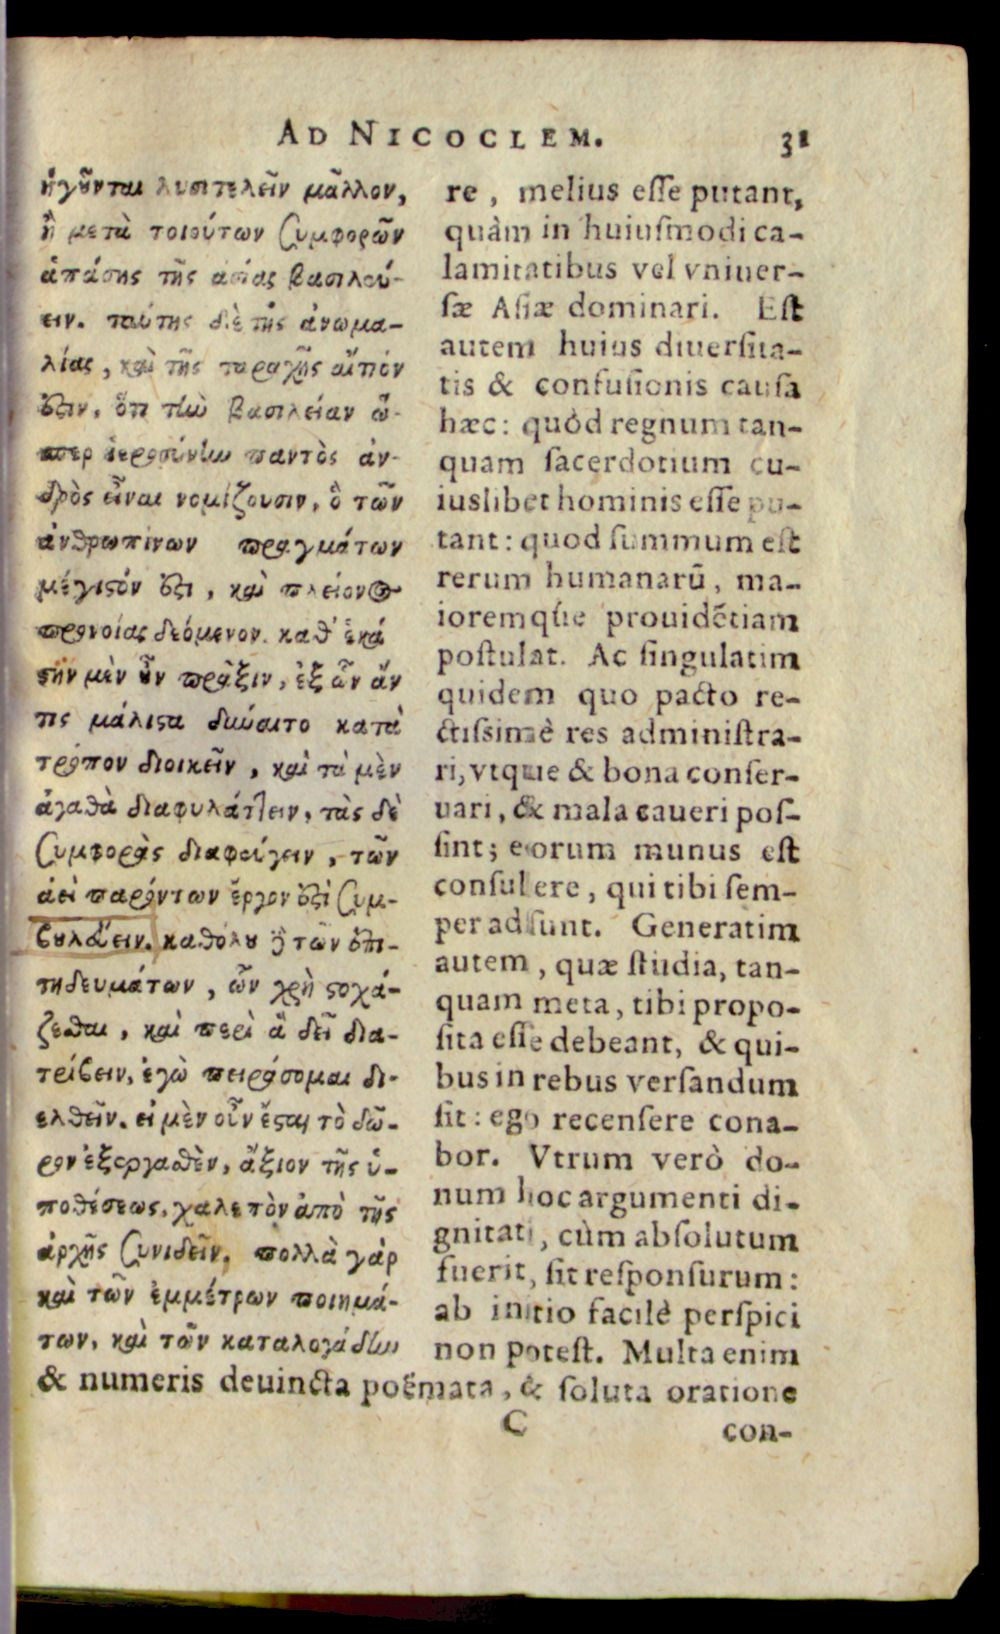 AD NICOCLEM. 31
ἡγοῦνται λυσιτελεῖν μᾶλλον,
ἢ μετὰ τοιούτων συμφορῶν
ἁπάσης τῆς ἀσίας βασιλεύ-
ειν. ταύτης δὲ τῆς ἀνωμα-
λίας, καὶ τῆς ταραχῆς αἴτιόν
ἐστιν, ὅτι τὴν βασιλείαν ὥ-
σπερ ἱερωσύνην παντὸς ἀν-
δρὸς εἶναι νομίζουσιν, ὃ τῶν
ἀνθρωπίνων πραγμάτων
μέγιστόν ἐστι, καὶ πλείονος
προνοίας δεόμενον. καθ' ἑκά
στην μὲν οὖν πρᾶξιν, ἐξ ὧν ἄν
τις μάλιστα δύναιτο κατὰ
τρόπον διοικεῖν, καὶ τὰ μὲν
ἀγαθὰ διαφυλάττειν, τὰς δὲ
συμφορὰς διαφεύγειν, τῶν
ἀεὶ παρόντων ἔργον ἐστὶ συμ-
βουλεύειν. καθόλου δὲ τῶν ἐπι-
τηδευμάτων, ὧν χρὴ στοχά-
ζεσθαι, καὶ περὶ ἃ δεῖ δια-
τρίβειν, ἐγὼ πειράσομαι δι-
ελθεῖν. εἰ μὲν οὖν ἔσται τὸ δῶ-
ρον ἐξεργασθὲν, ἄξιον τῆς ὑ-
ποθέσεως, χαλεπὸν ἀπὸ τῆς
ἀρχῆς συνιδεῖν. πολλὰ γὰρ
καὶ τῶν ἐμμέτρων ποιημά-
των, καὶ τῶν καταλογάδην
re, melius esse putant,
quàm in huiusmodi ca-
lamitatibus vel vniuer-
sæ Asiæ dominari. Est
autem huius diuersita-
tis & confusionis causa
hæc: quòd regnum tan-
quam sacerdotium cu-
iuslibet hominis esse pu-
tant: quod summum est
rerum humanarū, ma-
ioremque prouidētiam
postulat. Ac singulatim
quidem quo pacto re-
ctissimè res administra-
ri, vtque & bona conser-
uari, & mala caueri pos-
sint; eorum munus est
consulere, qui tibi sem-
per adsunt. Generatim
autem, quæ studia, tan-
quam meta, tibi propo-
sita esse debeant, & qui-
bus in rebus versandum
sit: ego recensere cona-
bor. Vtrum verò do-
num hoc argumenti di-
gnitati, cùm absolutum
fuerit, sit responsurum:
ab initio facilè perspici
non potest. Multa enim
& numeris deuincta poëmata, & soluta oratione
C con-